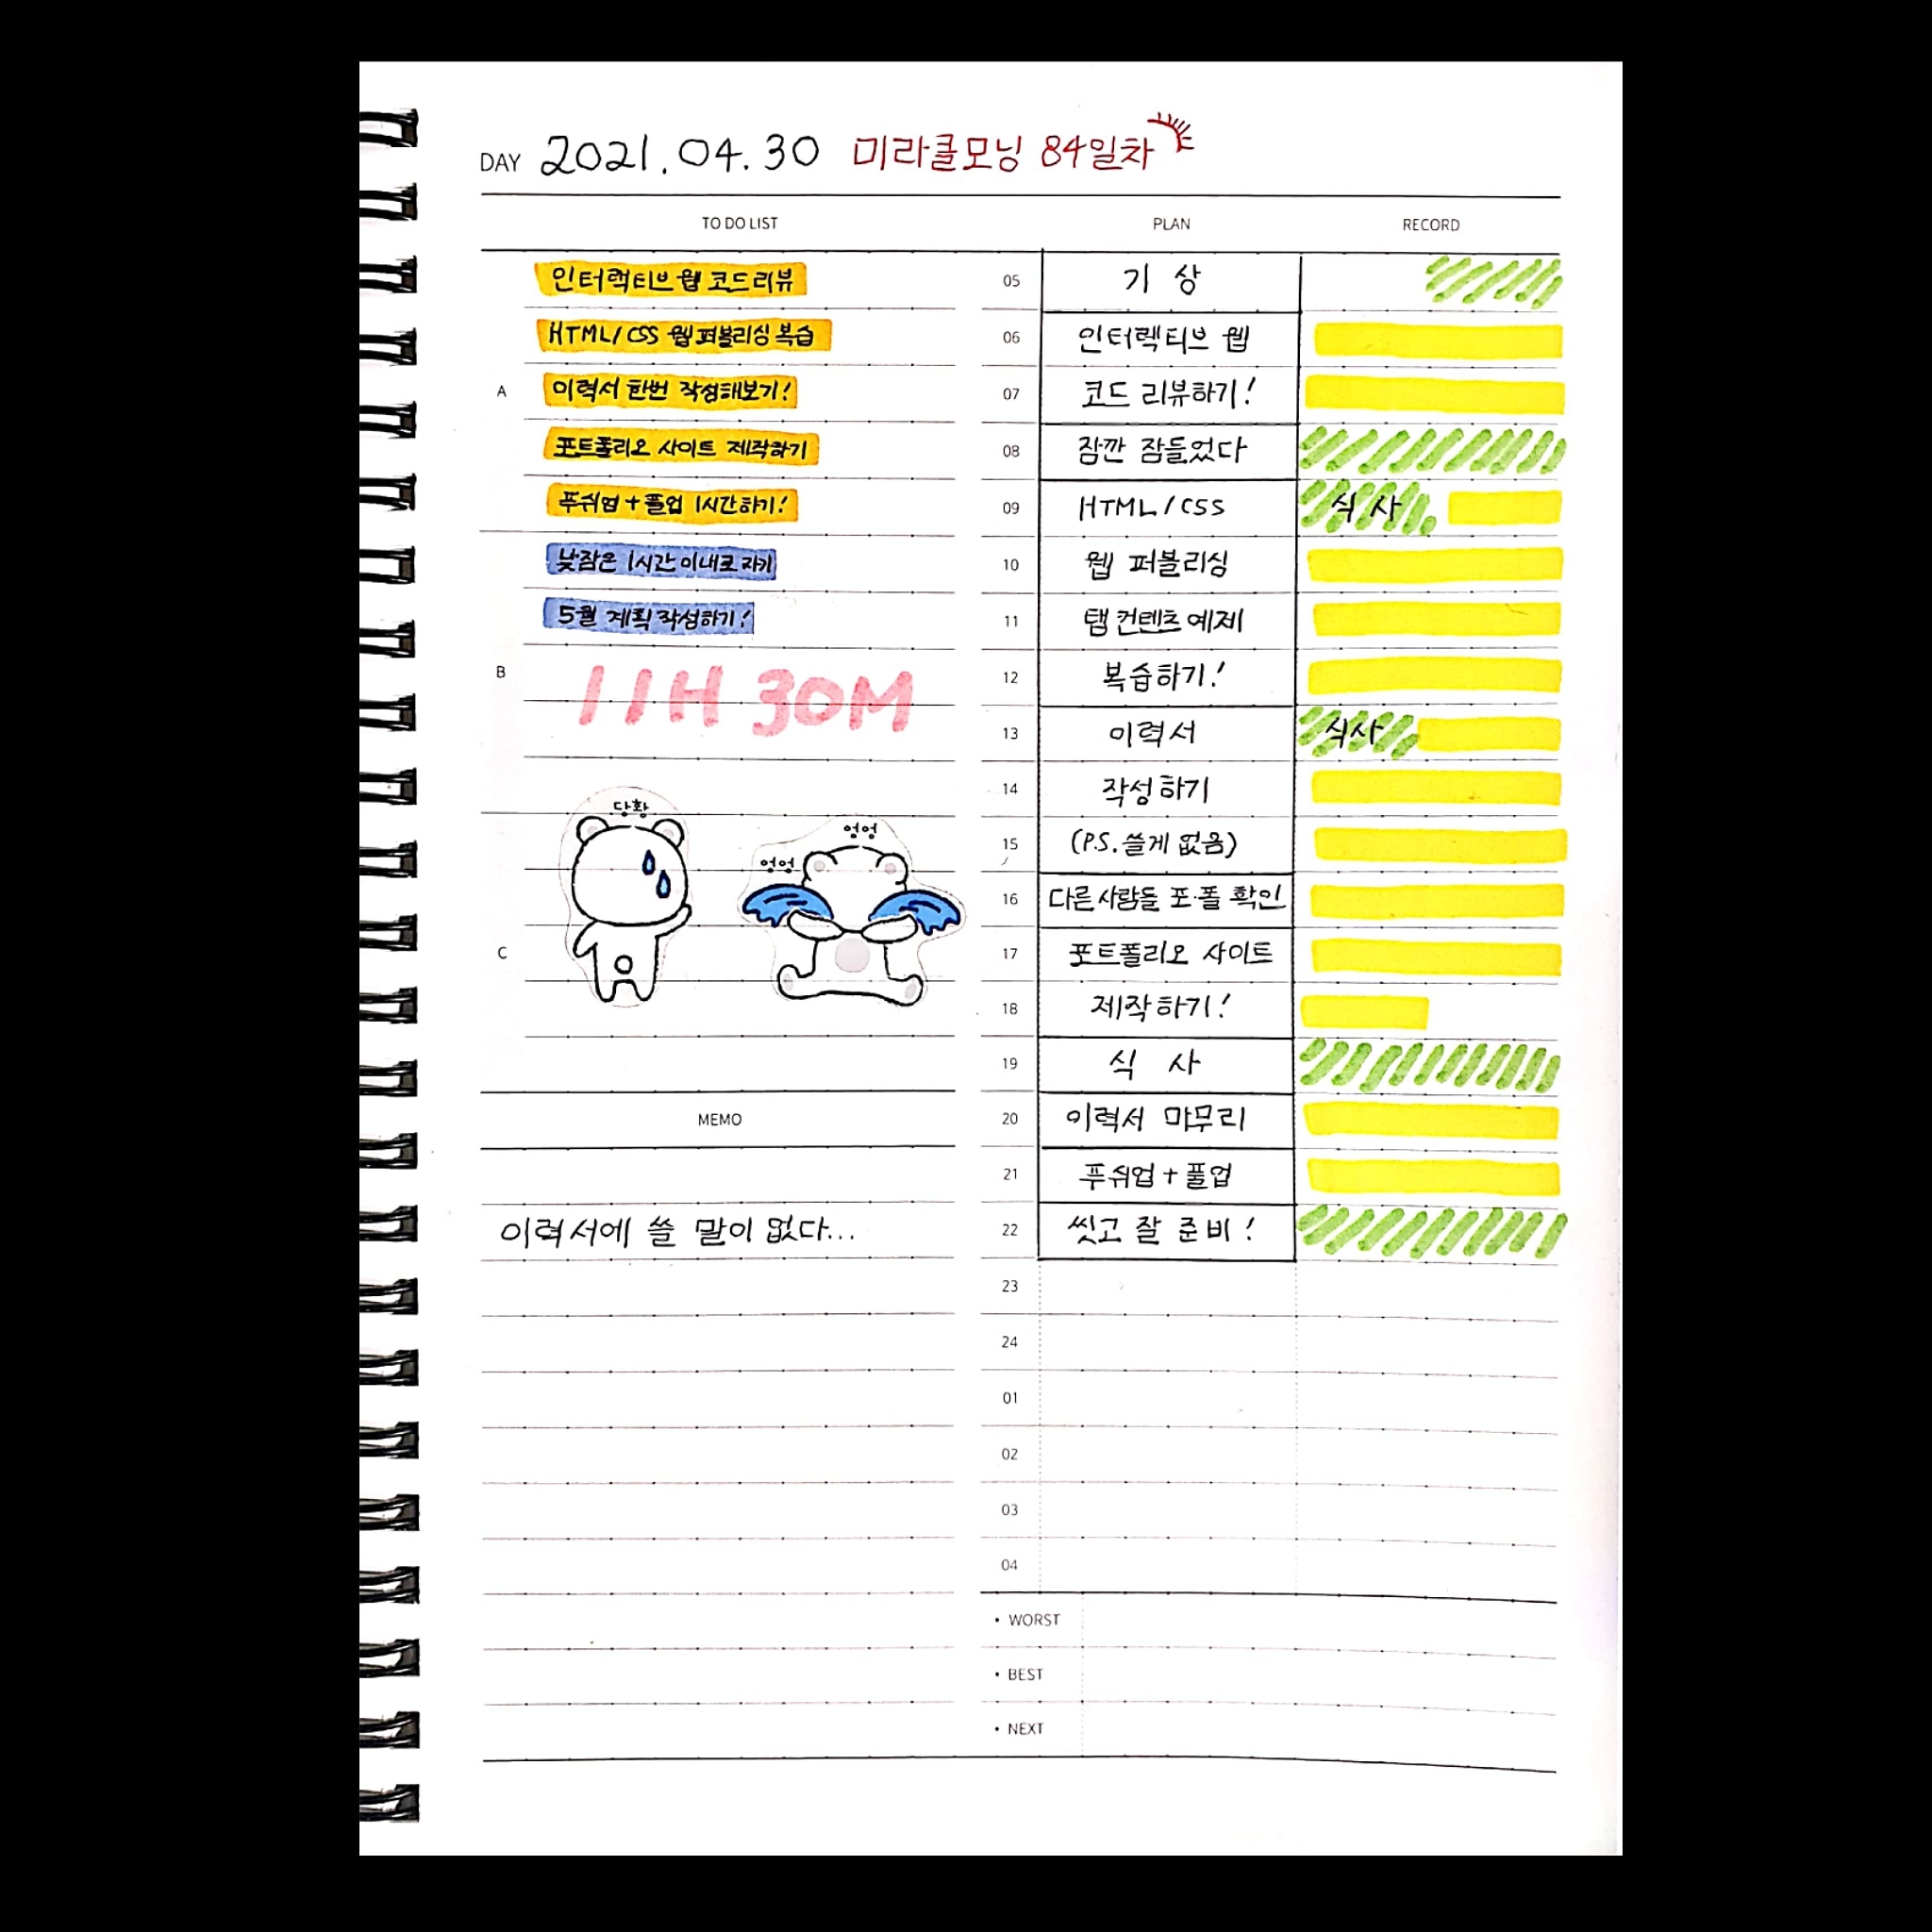 DAY 2021.04.30 미라클모닝 84일차
TO DO LIST
A
인터랙티브 웹 코드리뷰
HTML/CSS 웹 퍼블리싱 복습
이력서 한번 작성해보기!
포트폴리오 사이트 제작하기
푸쉬업+풀업 1시간하기!
B
낮잠은 1시간 이내로 자기
5월 계획 작성하기!
11H 30M
C
당황
엉엉
엉엉
MEMO
이력서에 쓸 말이 없다...
PLAN RECORD
05 기 상
06 인터렉티브 웹
07 코드 리뷰하기!
08 잠깐 잠들었다
09 HTML/CSS 식사
10 웹 퍼블리싱
11 탭 컨텐츠 예제
12 복습하기!
13 이력서 식사
14 작성하기
15 (P.S. 쓸게 없음)
16 다른 사람들 포·폴 확인
17 포트폴리오 사이트
18 제작하기!
19 식 사
20 이력서 마무리
21 푸쉬업+풀업
22 씻고 잘 준비!
23
24
01
02
03
04
• WORST
• BEST
• NEXT